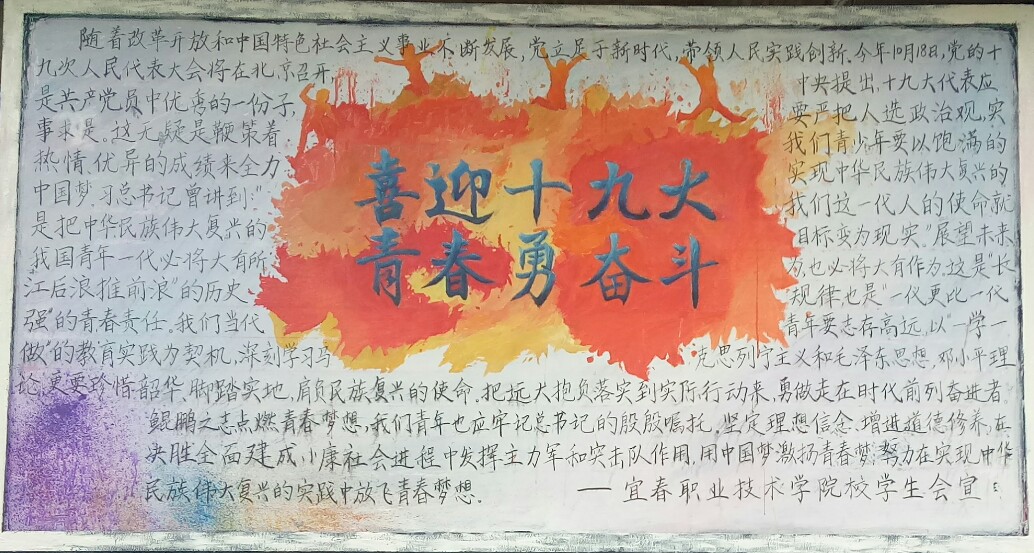 随着改革开放和中国特色社会主义事业不断发展,党立足于新时代,带领人民实践创新.今年10月18日,党的十
九次人民代表大会将在北京召开,中央提出,十九大代表应
是共产党员中优秀的一份子,要严把人选政治观,实
事求是。这无疑是鞭策着我们青少年要以饱满的
热情.优异的成绩来全力实现中华民族伟大复兴的
中国梦.习总书记曾讲到:"我们这一代人的使命就
是把中华民族伟大复兴的目标变为现实."展望未来
我国青年一代必将大有所为,也必将大有作为.这是"长
江后浪推前浪"的历史规律,也是"一代更比一代
强"的青春责任.我们当代青年要志存高远,以"一学一
做"的教育实践为契机,深刻学习马克思列宁主义和毛泽东思想,邓小平理
论,更要珍惜韶华,脚踏实地,肩负民族复兴的使命,把远大抱负落实到实际行动来,勇做走在时代前列奋进者.
鲲鹏之志点燃青春梦想,我们青年也应牢记总书记的殷殷嘱托,坚定理想信念.增进道德修养,在
决胜全面建成小康社会进程中发挥主力军和突击队作用.用中国梦激扬青春梦,努力在实现中华
民族伟大复兴的实践中放飞青春梦想.
——宜春职业技术学院校学生会宣
喜迎十九大
青春勇奋斗